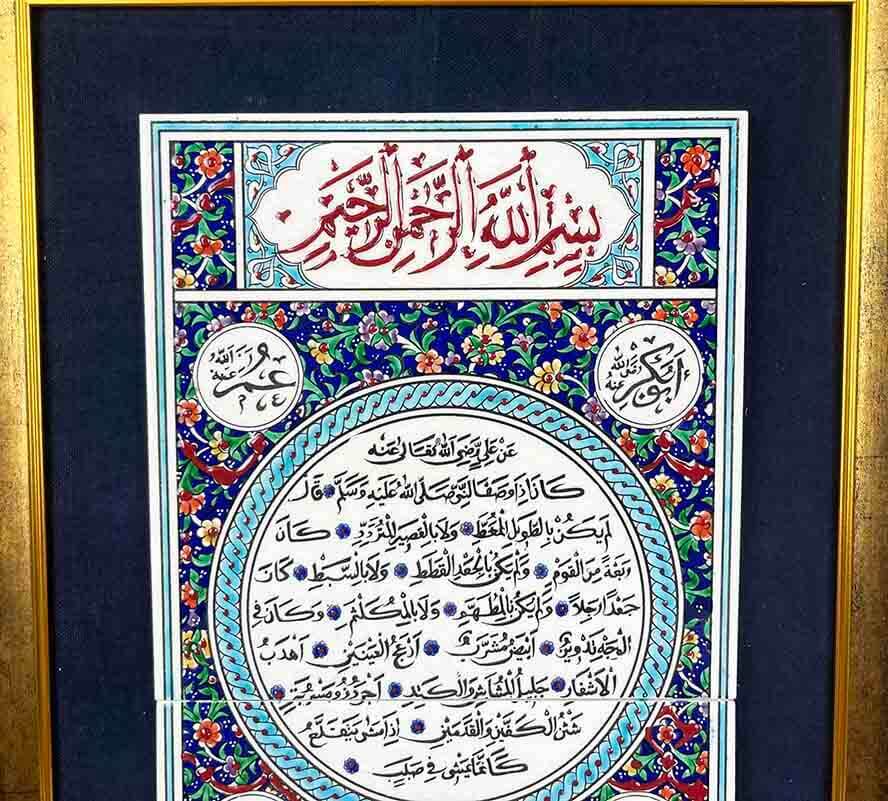 بِسْمِ اللهِ الرَّحْمٰنِ الرَّحِيْمِ
ابوبكر رضى الله عنه
عمر رضى الله عنه
عَنْ عَلِيٍّ رَضِيَ اللهُ تَعَالٰى عَنْهُ
كَانَ اِذَا وَصَفَ النَّبِيَّ صَلَّى اللهُ عَلَيْهِ وَسَلَّمَ قَالَ
لَمْ يَكُنْ بِالطَّوِيلِ الْمُمَّغَطِ وَلَا بِالْقَصِيرِ الْمُتَرَدِّدِ كَانَ
رَبْعَةً مِنَ الْقَوْمِ وَلَمْ يَكُنْ بِالْجَعْدِ الْقَطَطِ وَلَا بِالسَّبْطِ كَانَ
جَعْدًا رَجِلاً وَلَمْ يَكُنْ بِالْمُطَهَّمِ وَلَا بِالْمُكَلْثَمِ وَكَانَ فِي
الْوَجْهِ تَدْوِيرٌ اَبْيَضُ مُشْرَبٌ اَدْعَجُ الْعَيْنَيْنِ اَهْدَبُ
الْاَشْفَارِ جَلِيلُ الْمُشَاشِ وَالْكَتَدِ اَجْرَدُ ذُو مَسْرُبَةٍ
شَثْنُ الْكَفَّيْنِ وَالْقَدَمَيْنِ اِذَا مَشٰى يَتَقَلَّعُ
كَاَنَّمَا يَمْشِي فِي صَبَبٍ